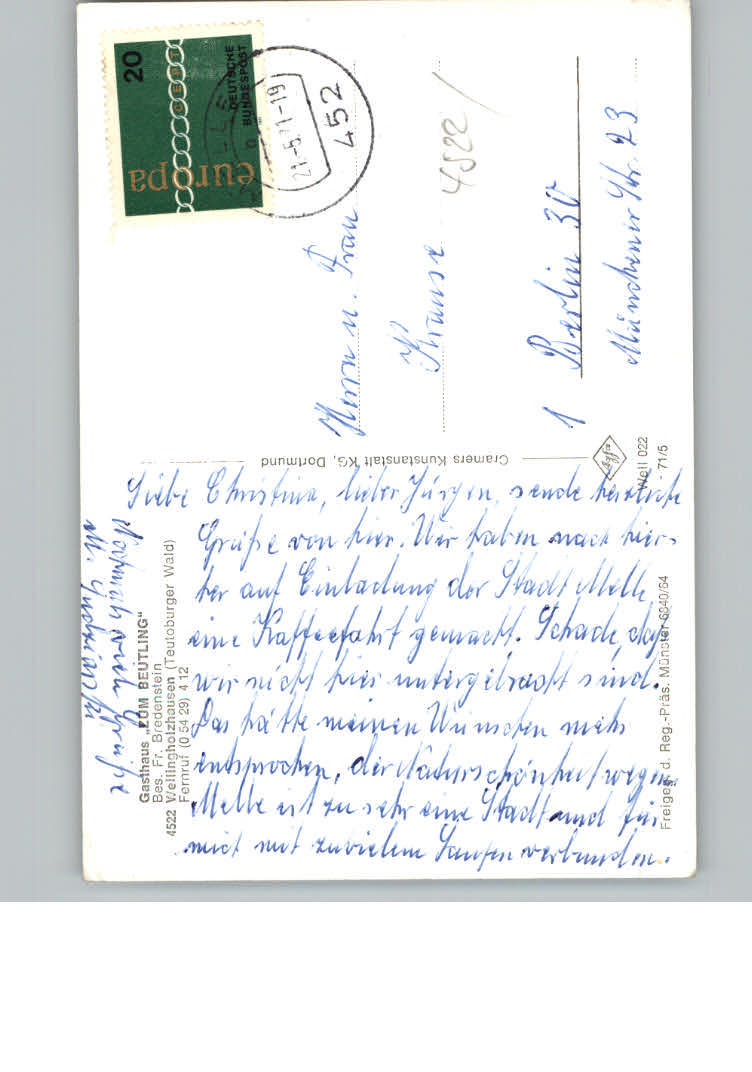 20
europa
CEPT
DEUTSCHE
BUNDESPOST
21.-5.71-19
452
4522
Herrn u. Frau
Krause
1 Berlin 30
Münchener Str. 23
Cramers Kunstanstalt KG, Dortmund
Agfa
Well 022
71/5
Freigeg. d. Reg.-Präs. Münster 6840/64
Gasthaus „ZUM BEUTLING“
Bes. Fr. Bredenstein
4522 Wellingholzhausen (Teutoburger Wald)
Fernruf (0 54 29) 4 12
Liebe Christina, lieber Jürgen, sende herzliche
Grüße von hier. Wir haben nach hier-
her auf Einladung der Stadt Melle
eine Kaffeefahrt gemacht. Schade, daß
wir nicht hier untergebracht sind.
Das hätte meinen Wünschen mehr
entsprochen, der Naturschönheit wegen.
Melle ist zu sehr eine Stadt und für
mich mit zuvielem Laufen verbunden.
Nochmals viele Grüße